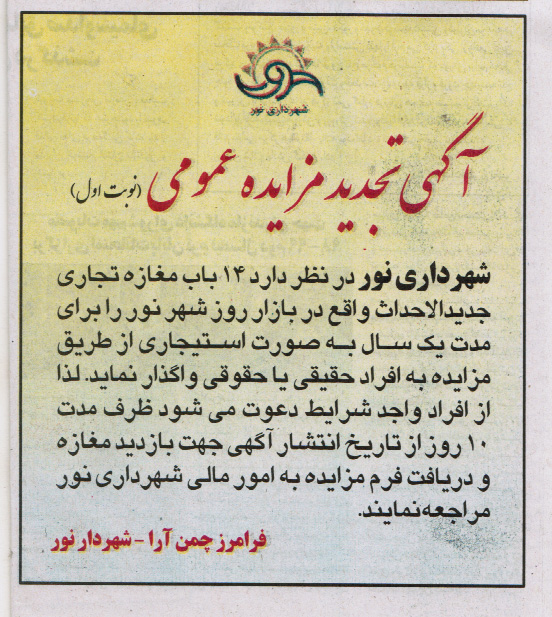 شهرداری نور
آگهی تجدید مزایده عمومی (نوبت اول)
شهرداری نور در نظر دارد ۱۴ باب مغازه تجاری
جدیدالاحداث واقع در بازار روز شهر نور را برای
مدت یک سال به صورت استیجاری از طریق
مزایده به افراد حقیقی یا حقوقی واگذار نماید. لذا
از افراد واجد شرایط دعوت می شود ظرف مدت
۱۰ روز از تاریخ انتشار آگهی جهت بازدید مغازه
و دریافت فرم مزایده به امور مالی شهرداری نور
مراجعه نمایند.
فرامرز چمن آرا - شهردار نور